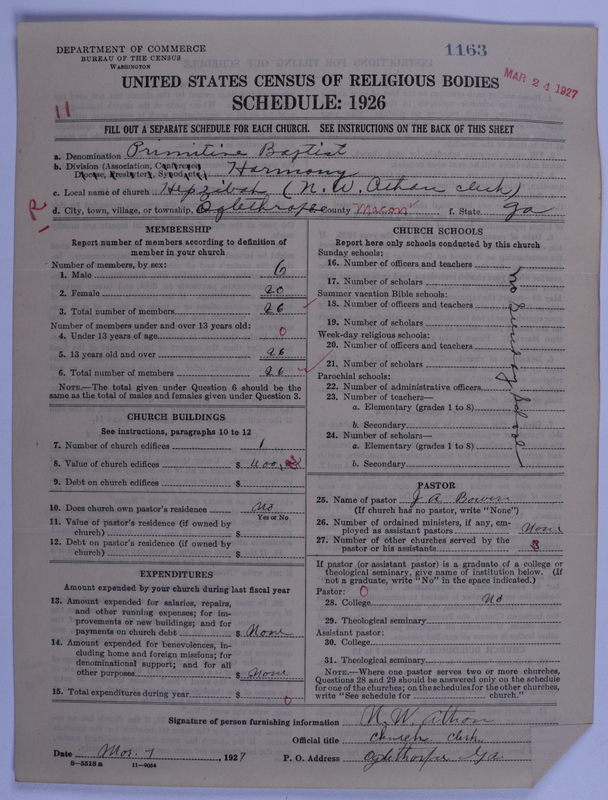 DEPARTMENT OF COMMERCE
BUREAU OF THE CENSUS
WASHINGTON
1163
MAR 24 1927
UNITED STATES CENSUS OF RELIGIOUS BODIES
SCHEDULE: 1926
11
FILL OUT A SEPARATE SCHEDULE FOR EACH CHURCH. SEE INSTRUCTIONS ON THE BACK OF THIS SHEET
a. Denomination Primitive Baptist
b. Division (Association, Conference, Diocese, Presbytery, Synod, etc.) Harmony
c. Local name of church Hepzibah (N. W. Athon clerk)
d. City, town, village, or township, Oglethorpe County Macon f. State Ga
R
MEMBERSHIP
Report number of members according to definition of
member in your church
Number of members, by sex:
1. Male 6
2. Female 20
3. Total number of members 26
Number of members under and over 13 years old:
4. Under 13 years of age 0
5. 13 years old and over 26
6. Total number of members 26
NOTE.—The total given under Question 6 should be
same as the total of males and females given under Question 3.
CHURCH BUILDINGS
See instructions, paragraphs 10 to 12
7. Number of church edifices 1
8. Value of church edifices $ 400,
9. Debt on church edifices $
10. Does church own pastor's residence No
Yes or No
11. Value of pastor's residence (if owned by
church) $
12. Debt on pastor's residence (if owned by
church) $
EXPENDITURES
Amount expended by your church during last fiscal year
13. Amount expended for salaries, repairs,
and other running expenses; for im-
provements or new buildings; and for
payments on church debt $ None
14. Amount expended for benevolences, in-
cluding home and foreign missions; for
denominational support; and for all
other purposes $ None
15. Total expenditures during year $ 0
CHURCH SCHOOLS
Report here only schools conducted by this church
Sunday schools:
16. Number of officers and teachers
17. Number of scholars
Summer vacation Bible schools:
18. Number of officers and teachers
19. Number of scholars
Week-day religious schools:
20. Number of officers and teachers
21. Number of scholars
Parochial schools:
22. Number of administrative officers
23. Number of teachers—
a. Elementary (grades 1 to 8)
b. Secondary
24. Number of scholars—
a. Elementary (grades 1 to 8)
b. Secondary
no Sunday School
PASTOR
25. Name of pastor J A Bowen
(If church has no pastor, write "None")
26. Number of ordained ministers, if any, em-
ployed as assistant pastors None
27. Number of other churches served by the
pastor or his assistants 3
If pastor (or assistant pastor) is a graduate of a college or
theological seminary, give name of institution below. (If
not a graduate, write "No" in the space indicated.)
Pastor: 0
28. College No
29. Theological seminary
Assistant pastor:
30. College
31. Theological seminary
NOTE.—Where one pastor serves two or more churches,
Questions 28 and 29 should be answered only on the schedule
for one of the churches; on the schedules for the other churches,
write "See schedule for church."
Signature of person furnishing information N. W. Athon
Official title church clerk
Date Mar. 1, 1927 P. O. Address Oglethorpe Ga
8—5518 a 11—9054